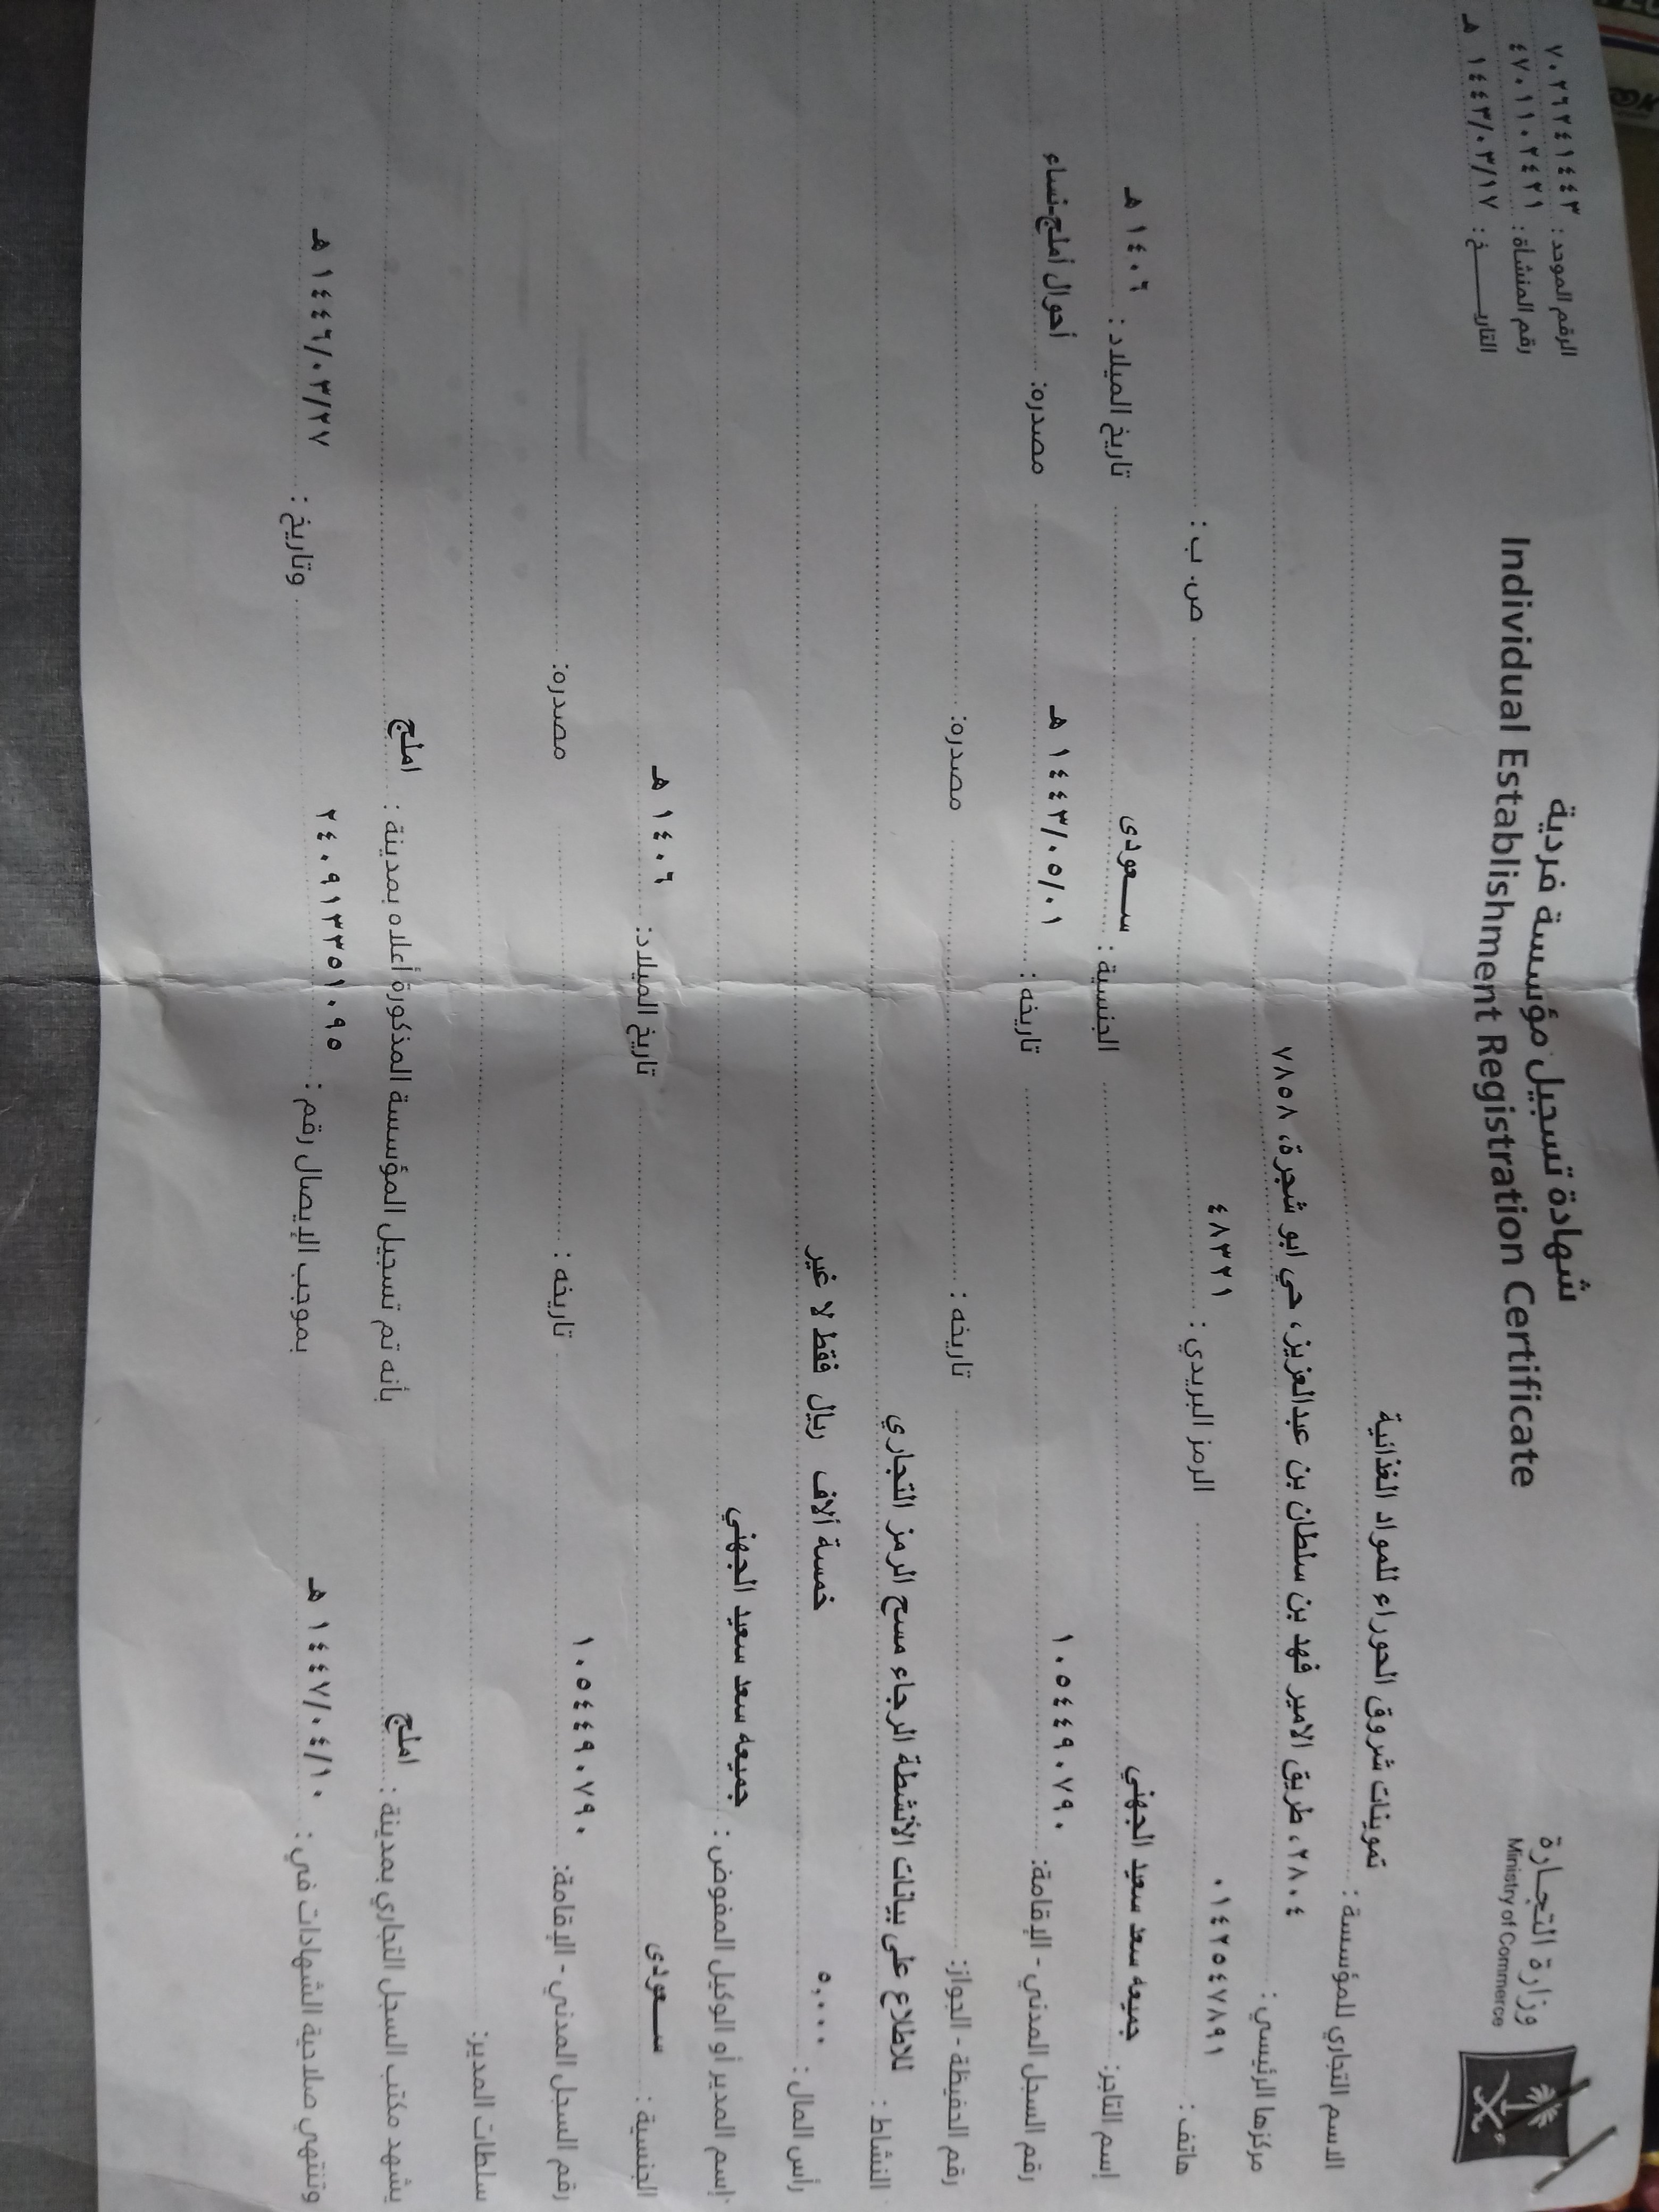 وزارة التجارة
Ministry of Commerce
شهادة تسجيل مؤسسة فردية
Individual Establishment Registration Certificate
الرقم الموحد : ٧٠٢٦٢٤١٤٤٣
رقم المنشأة : ٤٧٠١١٠٢٤٢١
التاريـــــخ : ١٤٤٣/٠٣/١٧ هـ
الاسم التجاري للمؤسسة : تموينات شروق الحوراء للمواد الغذائية
مركزها الرئيسي : ٢٨٠٤، طريق الامير فهد بن سلطان بن عبدالعزيز، حي ابو شجرة، ٧٨٥٨
هاتف : ٠١٤٢٥٤٧٨٩١ الرمز البريدي : ٤٨٣٢١ ص. ب :
إسم التاجر: جميعه سعد سعيد الجهني الجنسية : ســعودى تاريخ الميلاد : ١٤٠٦ هـ
رقم السجل المدني - الإقامة: ١٠٥٤٤٩٠٧٩٠ تاريخه : ١٤٤٣/٠٥/٠١ هـ مصدره: أحوال أملج-نساء
رقم الحفيظة - الجواز: تاريخه : مصدره:
النشاط : للاطلاع على بيانات الأنشطة الرجاء مسح الرمز التجاري
رأس المال : ٥,٠٠٠ خمسة آلاف ريال فقط لا غير
إسم المدير أو الوكيل المفوض : جميعه سعد سعيد الجهني
الجنسية : ســعودى تاريخ الميلاد: ١٤٠٦ هـ
رقم السجل المدني - الإقامة: ١٠٥٤٤٩٠٧٩٠ تاريخه : مصدره:
سلطات المدير:
يشهد مكتب السجل التجاري بمدينة : املج بأنه تم تسجيل المؤسسة المذكورة أعلاه بمدينة : املج
وتنتهي صلاحية الشهادات في : ١٤٤٧/٠٤/١٠ هـ بموجب الإيصال رقم : ٢٤٠٩١٣٣٥١٠٩٥ وتاريخ : ١٤٤٦/٠٣/٢٧ هـ